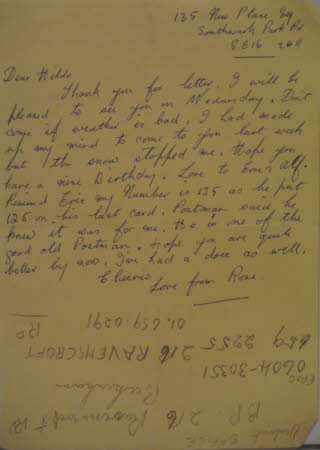 135 New Place Sq
Southwark Park Rd
SE16 2HR
Dear Hilda
Thank you for letter. I will be
pleased to see you on Wednesday. Don't
come if weather is bad. I had made
up my mind to come to you last week
but the snow stopped me. Hope you
have a nice Birthday. Love to Eric & Alf.
Remind Eric my Number is 135 as he put
125 on his last card. Postman said he
knew it was for me. He is one of the
good old Postman. Hope you are quite
better by now. I've had a dose as well.
Cheerio
Love from Rose.
BR. 2/6
Beckenham
0604-30351
659 2255 2/6 RAVENSCROFT
RD
01.659.0291